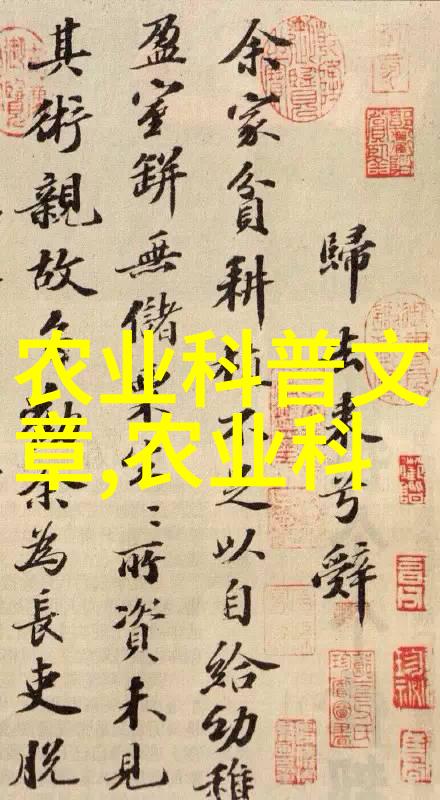 歸去来兮辭
余家貧耕植不足以自給幼稚
盈室缾無儲粟生〻所資未見
其術親故多勸余為長吏脱
农业科普文
章,农业科